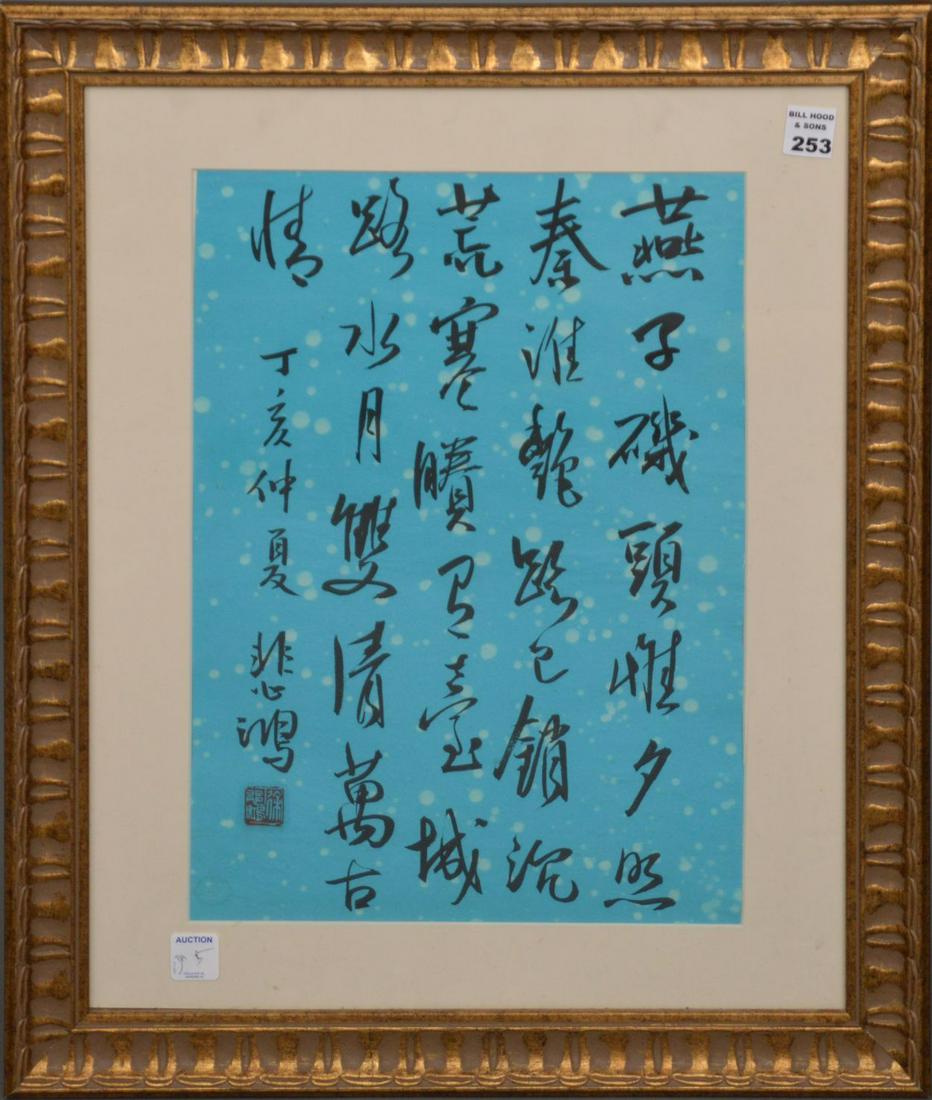 BILL HOOD
& SONS
253
燕子磯頭惟夕照
秦淮艷跡已銷沉
荒寒賸有臺城
路水月雙清萬古
情 丁亥仲夏 悲鴻
AUCTION